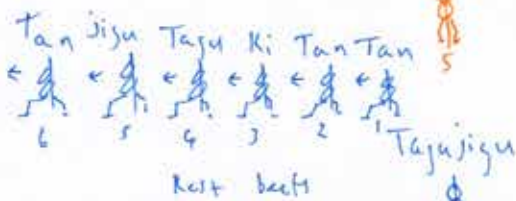 5
Tan jigu Tagu Ki Tan Tan
6 5 4 3 2 1
Tagujigu
Rest beats